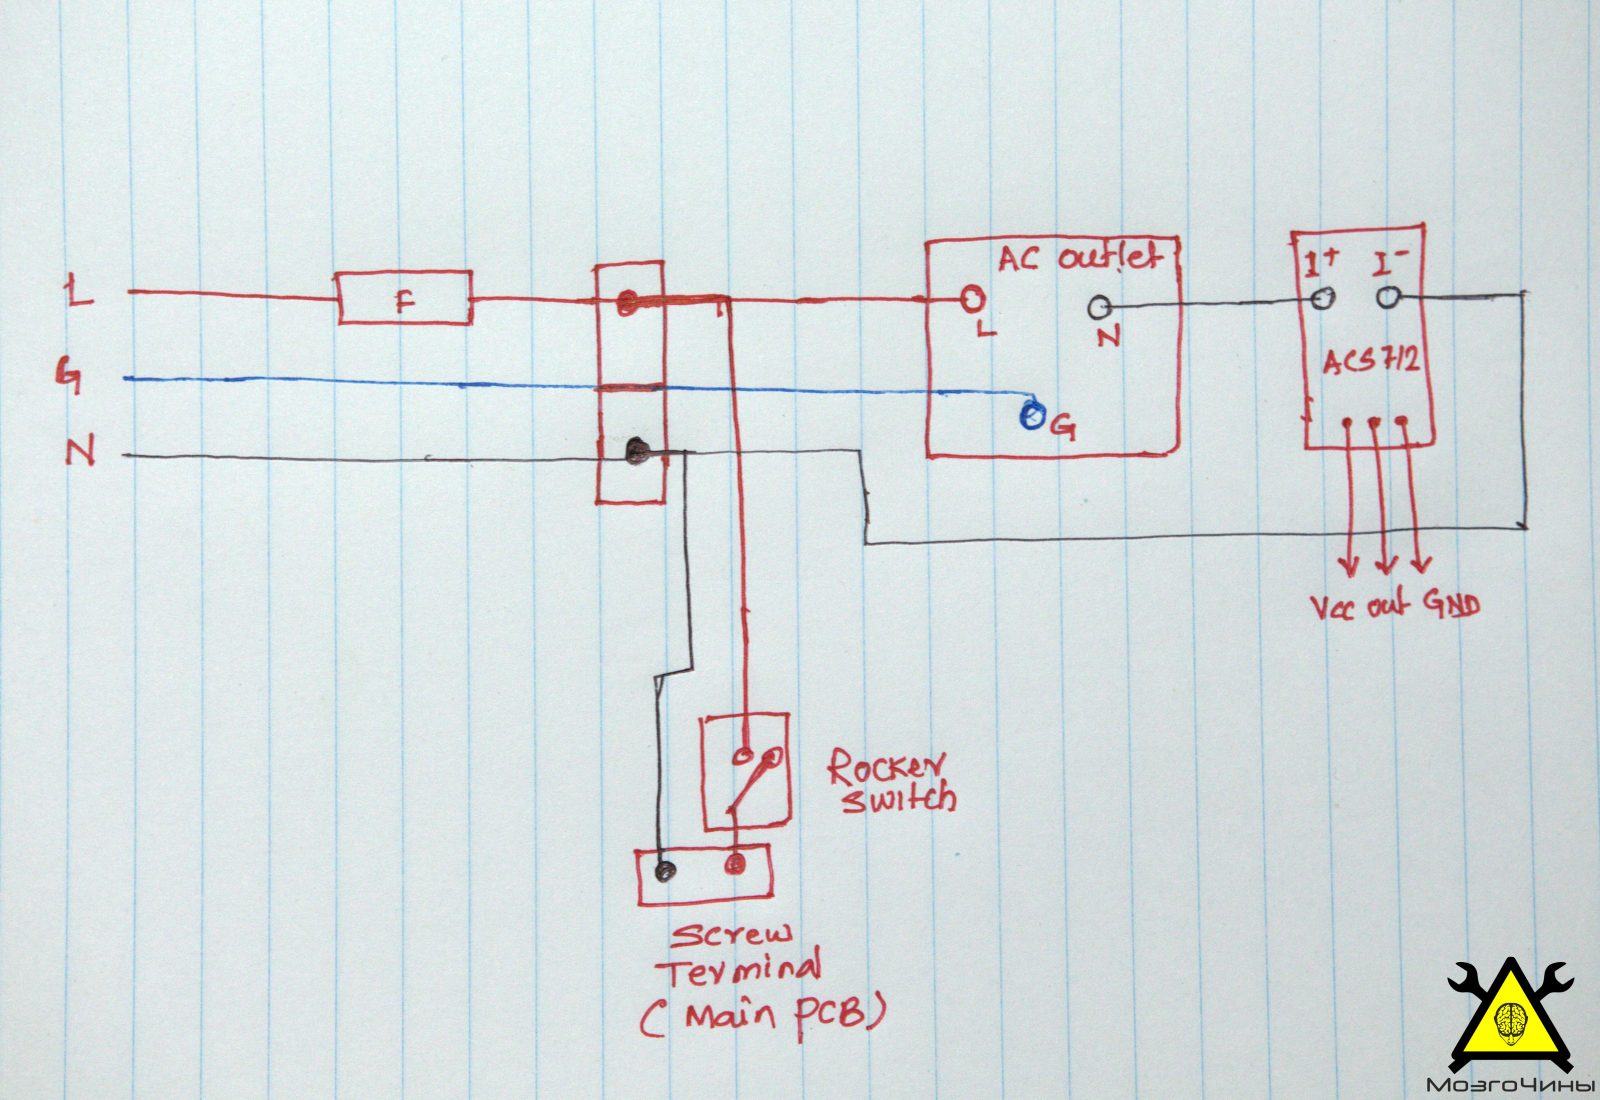 L
G
N
F
AC outlet
L
N
G
I+ I-
ACS712
Vcc out GND
Rocker
Switch
Screw
Terminal
(Main PCB)
МозгоЧины